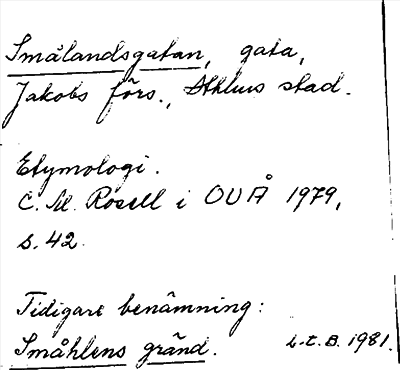 Smålandsgatan, gata,
Jakobs förs., Sthlms stad.
Etymologi.
C. M. Rosell i OUÅ 1979,
s. 42.
Tidigare benämning:
Småhlens gränd.
L-t. B. 1981.